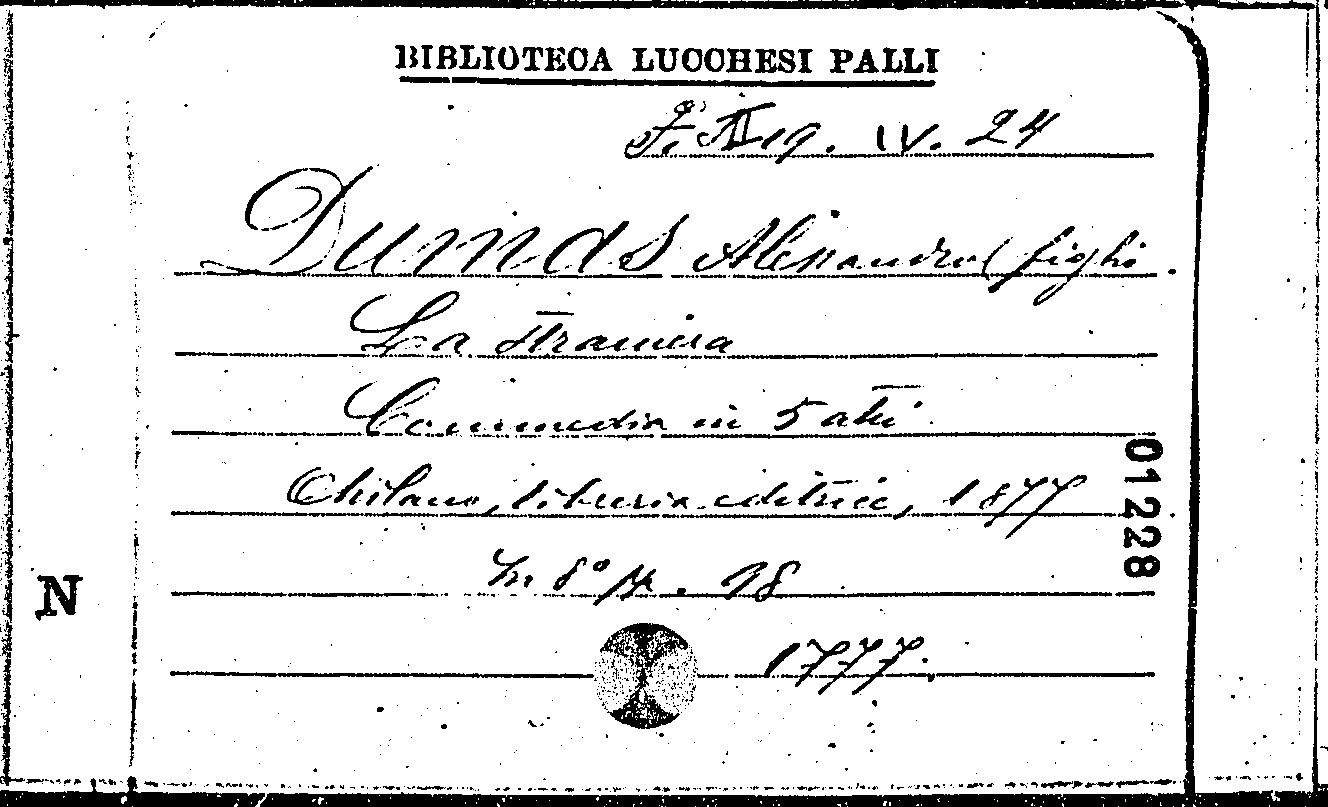 BIBLIOTECA LUCCHESI PALLI
F. III 19. IV. 24
Dumas Alessandro (figlio.
La straniera
Commedia in 5 atti.
Milano, libreria editrice, 1877
In 8° p. 98
1777.
01228
N